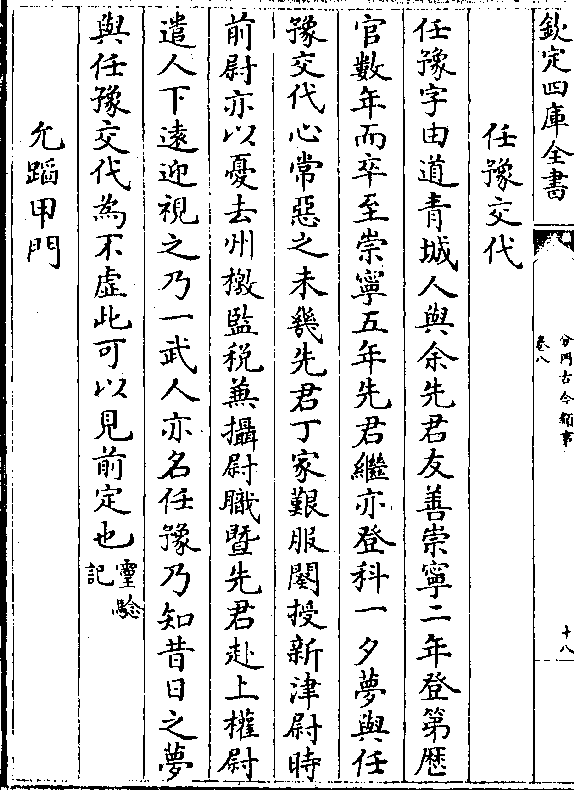 欽定四庫全書
分門古今類事
卷八
十八
任豫交代
任豫字由道青城人與余先君友善崇寧二年登第歷
官數年而卒至崇寧五年先君繼亦登科一夕夢與任
豫交代心常惡之未幾先君丁家艱服闋授新津尉時
前尉亦以憂去州檄監税兼攝尉職暨先君赴上權尉
遣人下逺迎視之乃一武人亦名任豫乃知昔日之夢
與任豫交代為不虚此可以見前定也靈驗
記
允蹈甲門